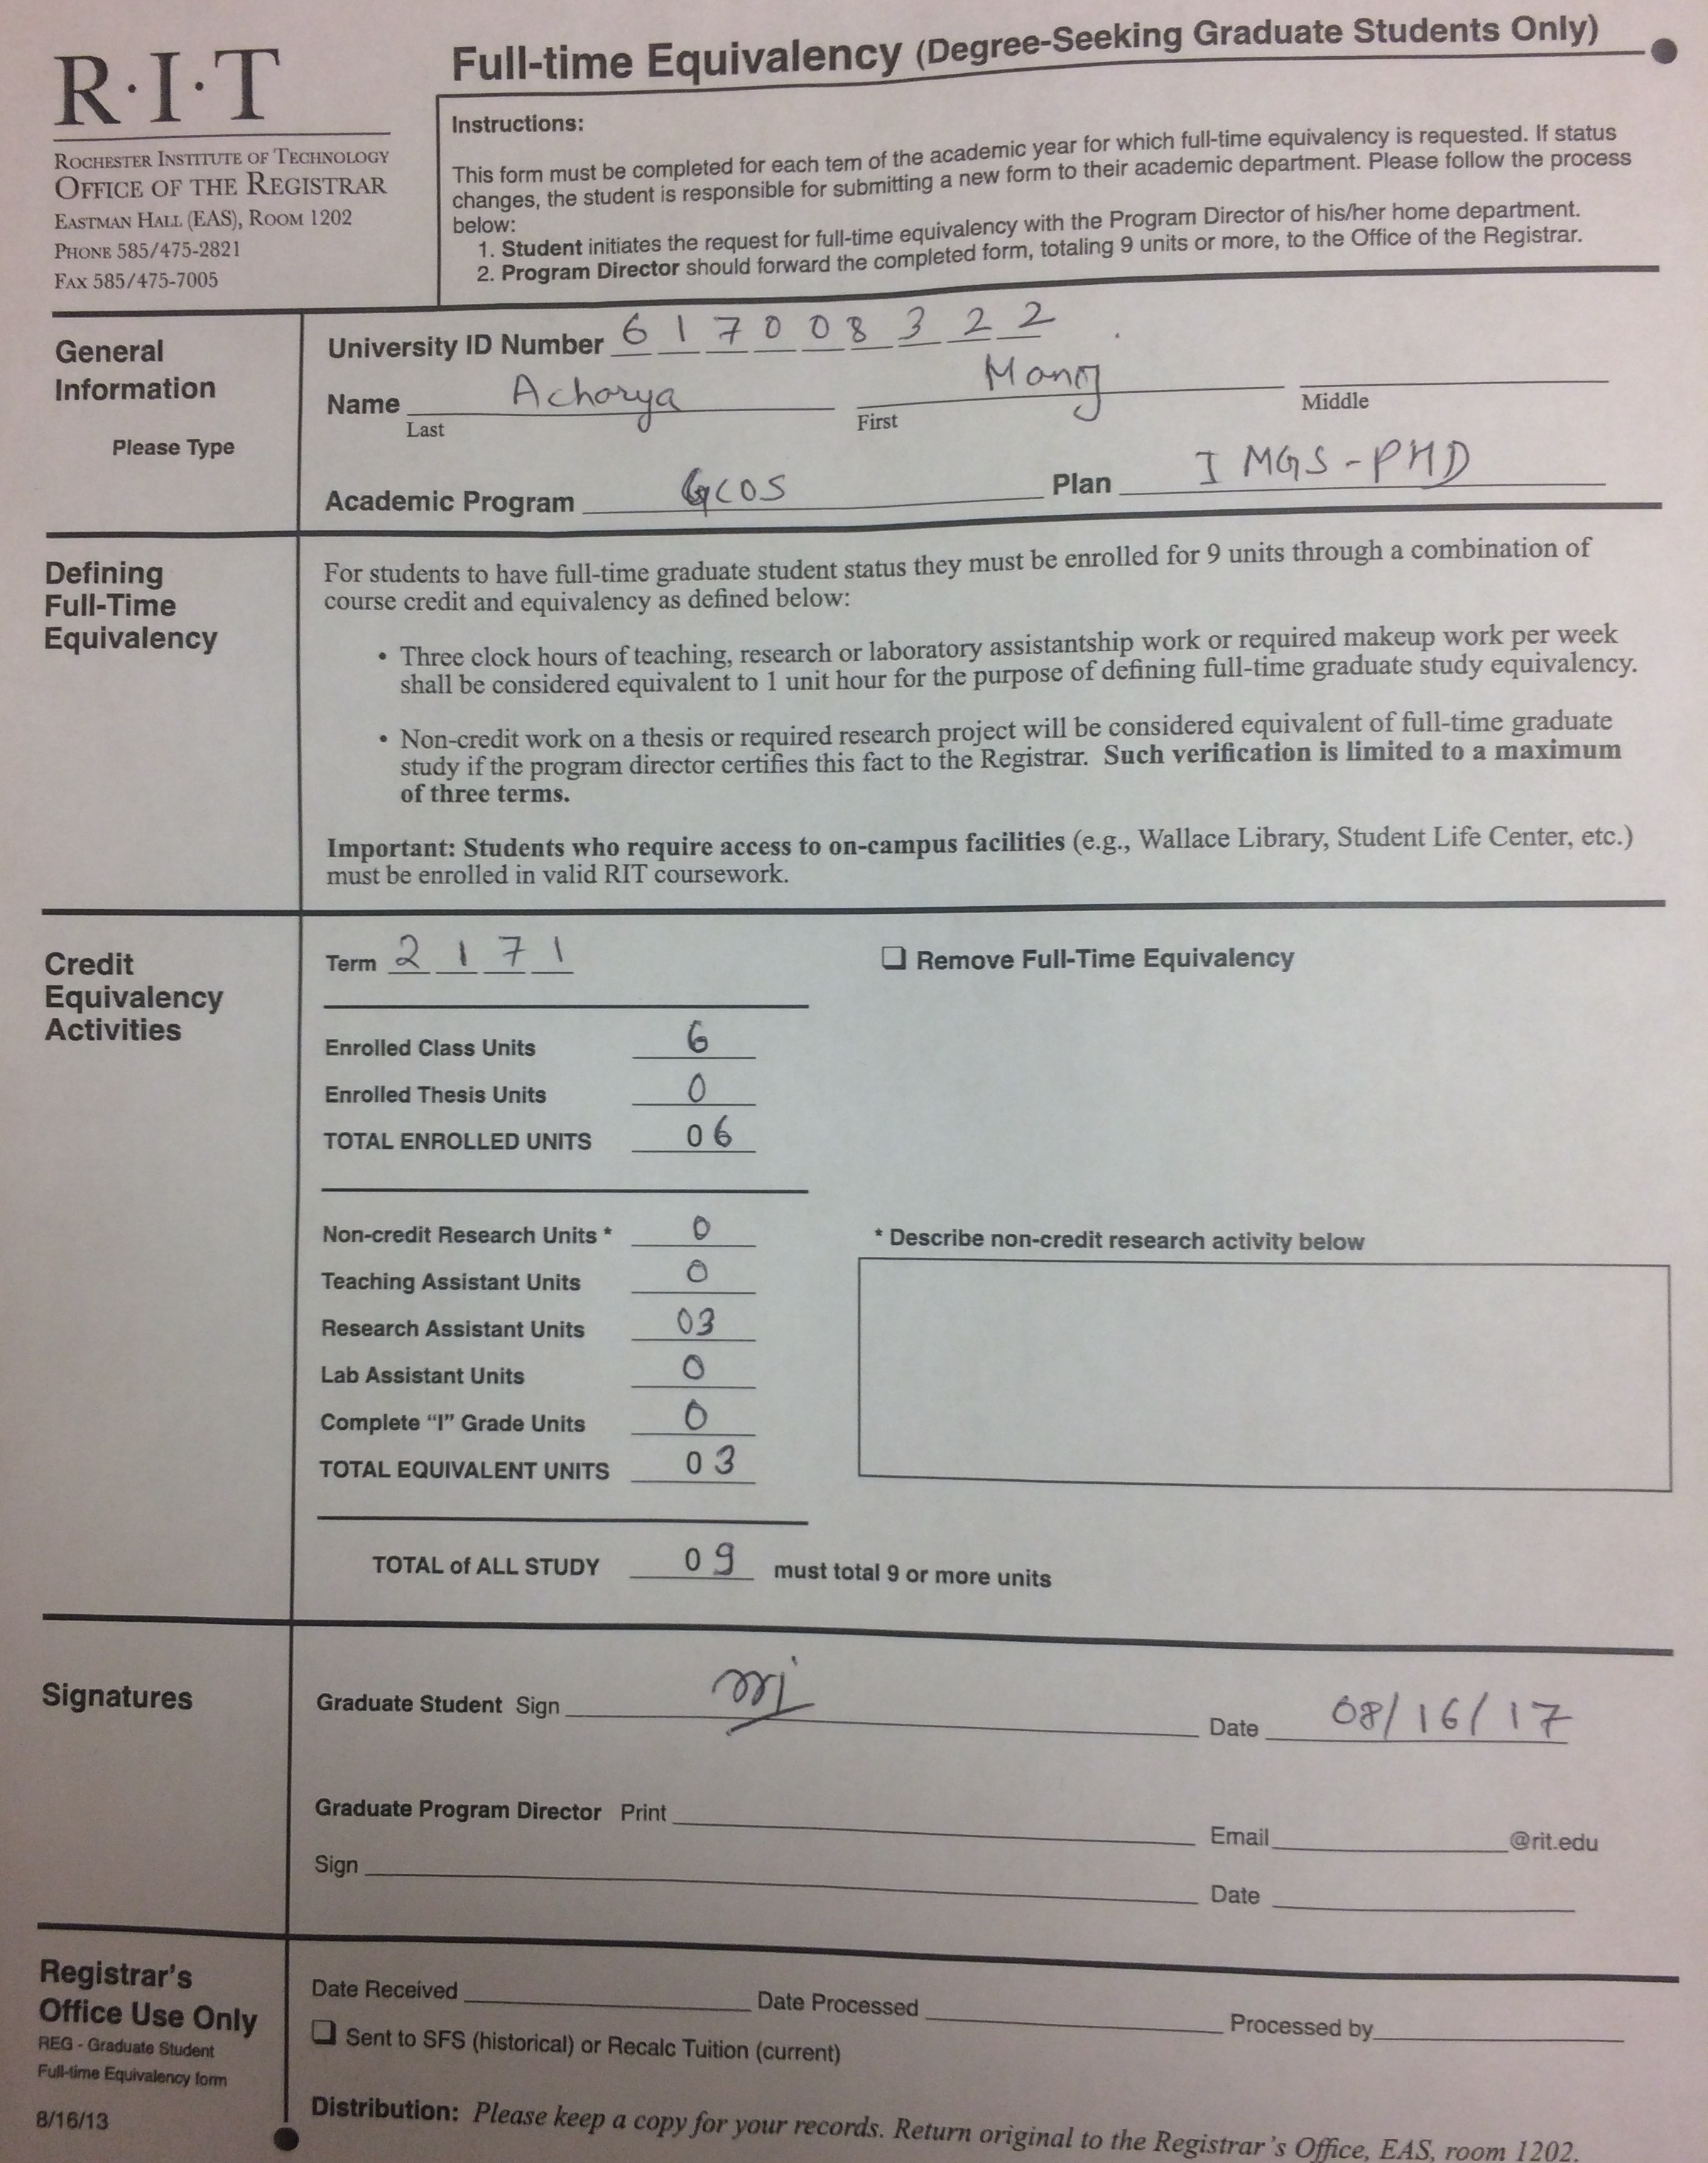 R·I·T
ROCHESTER INSTITUTE OF TECHNOLOGY
OFFICE OF THE REGISTRAR
EASTMAN HALL (EAS), ROOM 1202
PHONE 585/475-2821
FAX 585/475-7005
Full-time Equivalency (Degree-Seeking Graduate Students Only)
Instructions:
This form must be completed for each tem of the academic year for which full-time equivalency is requested. If status
changes, the student is responsible for submitting a new form to their academic department. Please follow the process
below:
1. Student initiates the request for full-time equivalency with the Program Director of his/her home department.
2. Program Director should forward the completed form, totaling 9 units or more, to the Office of the Registrar.
General
Information
Please Type
University ID Number 6 1 7 0 0 8 3 2 2
Name Acharya Manoj
Last First Middle
Academic Program GCOS Plan IMGS-PHD
Defining
Full-Time
Equivalency
For students to have full-time graduate student status they must be enrolled for 9 units through a combination of
course credit and equivalency as defined below:
• Three clock hours of teaching, research or laboratory assistantship work or required makeup work per week
shall be considered equivalent to 1 unit hour for the purpose of defining full-time graduate study equivalency.
• Non-credit work on a thesis or required research project will be considered equivalent of full-time graduate
study if the program director certifies this fact to the Registrar. Such verification is limited to a maximum
of three terms.
Important: Students who require access to on-campus facilities (e.g., Wallace Library, Student Life Center, etc.)
must be enrolled in valid RIT coursework.
Credit
Equivalency
Activities
Term 2 1 7 1
❏ Remove Full-Time Equivalency
Enrolled Class Units 6
Enrolled Thesis Units 0
TOTAL ENROLLED UNITS 06
Non-credit Research Units * 0
* Describe non-credit research activity below
Teaching Assistant Units 0
Research Assistant Units 03
Lab Assistant Units 0
Complete “I” Grade Units 0
TOTAL EQUIVALENT UNITS 03
TOTAL of ALL STUDY 09 must total 9 or more units
Signatures
Graduate Student Sign Date 08/16/17
Graduate Program Director Print Email @rit.edu
Sign Date
Registrar's
Office Use Only
REG - Graduate Student
Full-time Equivalency form
8/16/13
Date Received Date Processed Processed by
❏ Sent to SFS (historical) or Recalc Tuition (current)
Distribution: Please keep a copy for your records. Return original to the Registrar's Office, EAS, room 1202.